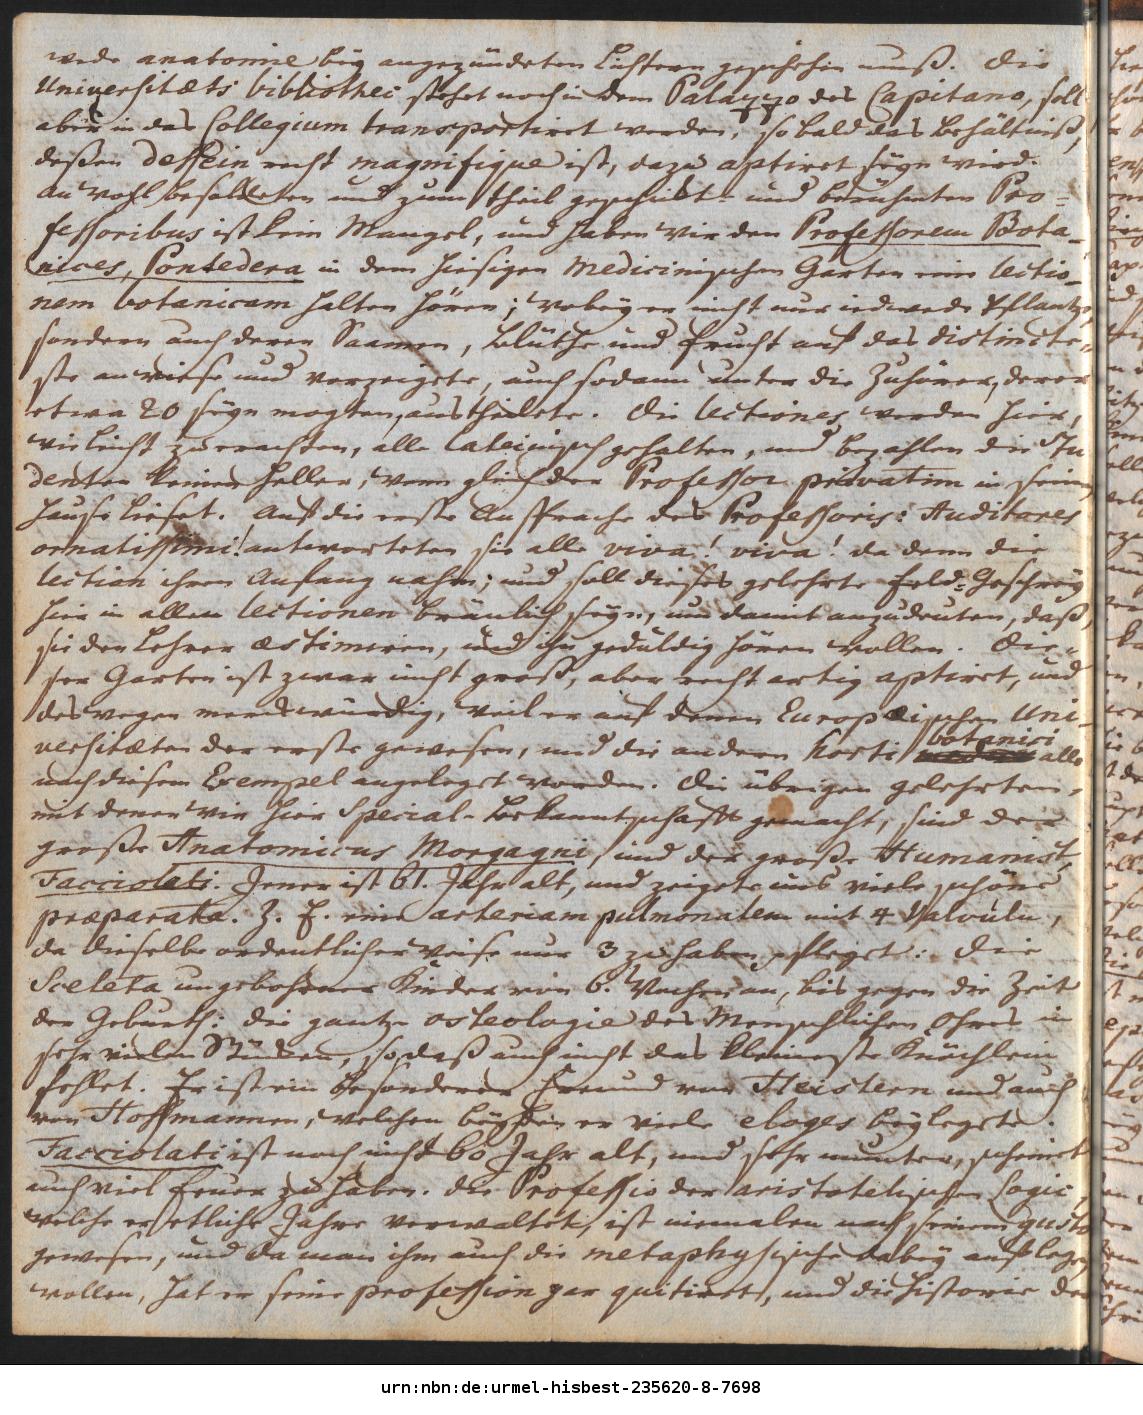 wede anatomie bey angezündeten Lichtern geschehen muß. Die
Universitæts bibliothec stehet noch in dem Palazzo des Capitano, soll
aber in das Collegium transportiret werden, so bald das Behältniß,
deßen dessein recht magnifique ist, dazu aptiret seyn wird.
An wohl besoldeten und zum theil geschickt- und berühmten Pro-
fessoribus ist kein Mangel, und haben wir den Professorem Bota-
nices, Pontedera in dem hiesigen Medicinischen Garten eine lectio-
nem botanicam halten hören; wobey er nicht nur iedwede Pflantze,
sondern auch deren Saamen, Blüthe und Frucht auf das distincte-
ste anwiese und vorzeigete, auch sodann unter die Zuhörer, derer
etwa 20 seyn mogten, austheilete. Die lectiones werden hier,
wie leicht zu erachten, alle lateinisch gehalten, und bezahlen die Stu
denten keinen Heller, wenn gleich der Professor privatim in seinem
Hause lieset. Auf die erste Ansprache des Professoris: Auditores
ornatissimi! antworteten sie alle viva! viva! da denn die
lection ihren Anfang nahm; und soll dieses gelehrte Feld-Geschrey
hier in allen lectionen bräuchlich seyn, um damit anzudeuten, daß
sie den Lehrer æstimiren, und ihn geduldig hören wollen. Die-
ser Garten ist zwar nicht groß, aber recht artig aptiret, und
deswegen merckwürdig, weil er auf denen Europæischen Uni-
versitæten der erste gewesen, und die andern horti botanici alle
nach diesem Exempel angeleget worden. Die übrigen gelehrten,
mit denen wir hier Special-Bekanntschafft gemacht, sind der
große Anatomicus Morgagni, und der große Humanist,
Facciolati. Jener ist 61. Jahr alt, und zeigete uns viele schöne
præparata. Z. E. eine arteriam pulmonalem mit 4 Valvuln,
da dieselbe ordentlicher Weise nur 3 zu haben pfleget: Die
Sceleta ungebohrner Kinder von 6. Wochen an, bis gegen die Zeit
der Geburth: die gantze osteologie des Menschlichen Ohres in
sehr vielen Stücken, so daß auch nicht das kleineste Knöchlein
fehlet. Er ist ein besonderer Freund von Heistern und auch
von Hoffmannen, welchen beyden er viele eloges beylegete.
Facciolati ist noch nicht 60 Jahr alt, und sehr munter, scheinet
auch viel Feuer zu haben. Die Professio der aristotelischen Logic,
welche er etliche Jahre verwaltet, ist niemalen nach seinem gusto
gewesen, und da man ihm auch die metaphysische dabey auflegen
wollen, hat er seine profession gar quitiret, und die Historie der